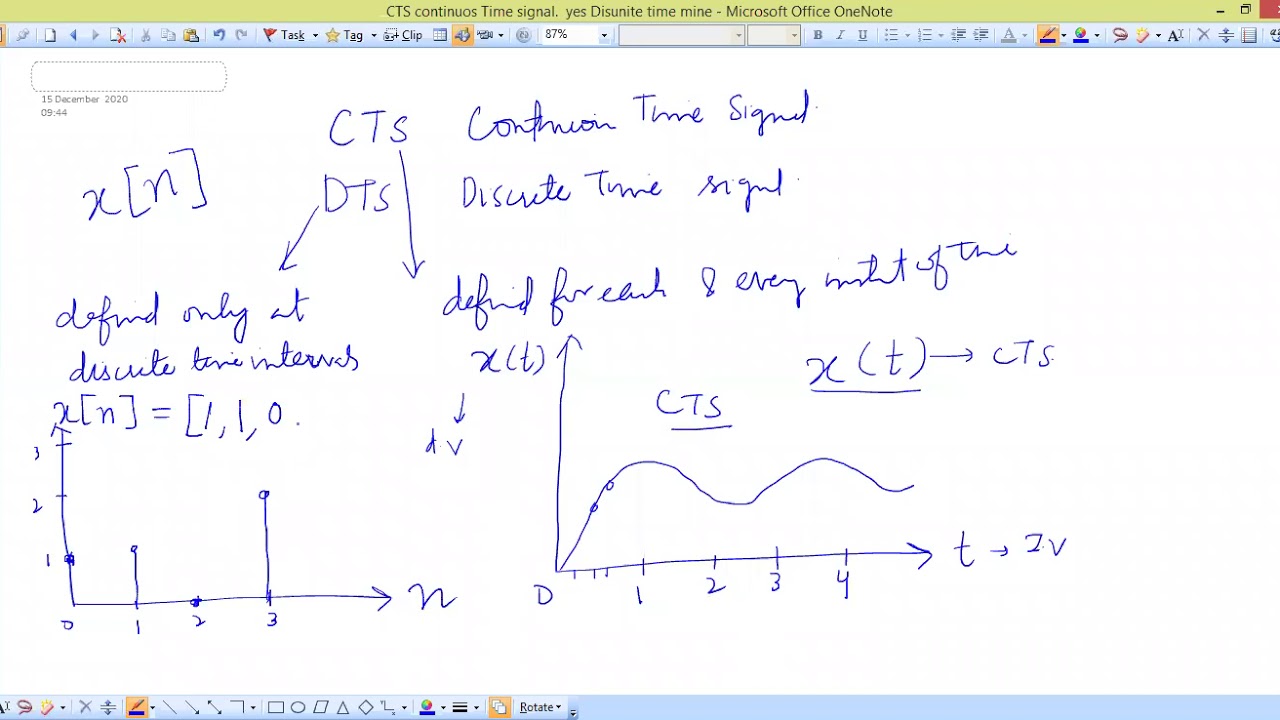 CTS continuos Time signal.  yes Disunite time mine - Microsoft Office OneNote
Task Tag Clip 87% B I U
15 December 2020
09:44
CTS Continuous Time Signal
x[n] DTS Discrete Time signal
defined for each & every instant of time
defined only at
discrete time intervals
x(t) x(t) → CTS
x[n] = [1, 1, 0
CTS
d.v
3
2
1
0 1 2 3 n
0 1 2 3 4 t → I.V
Rotate